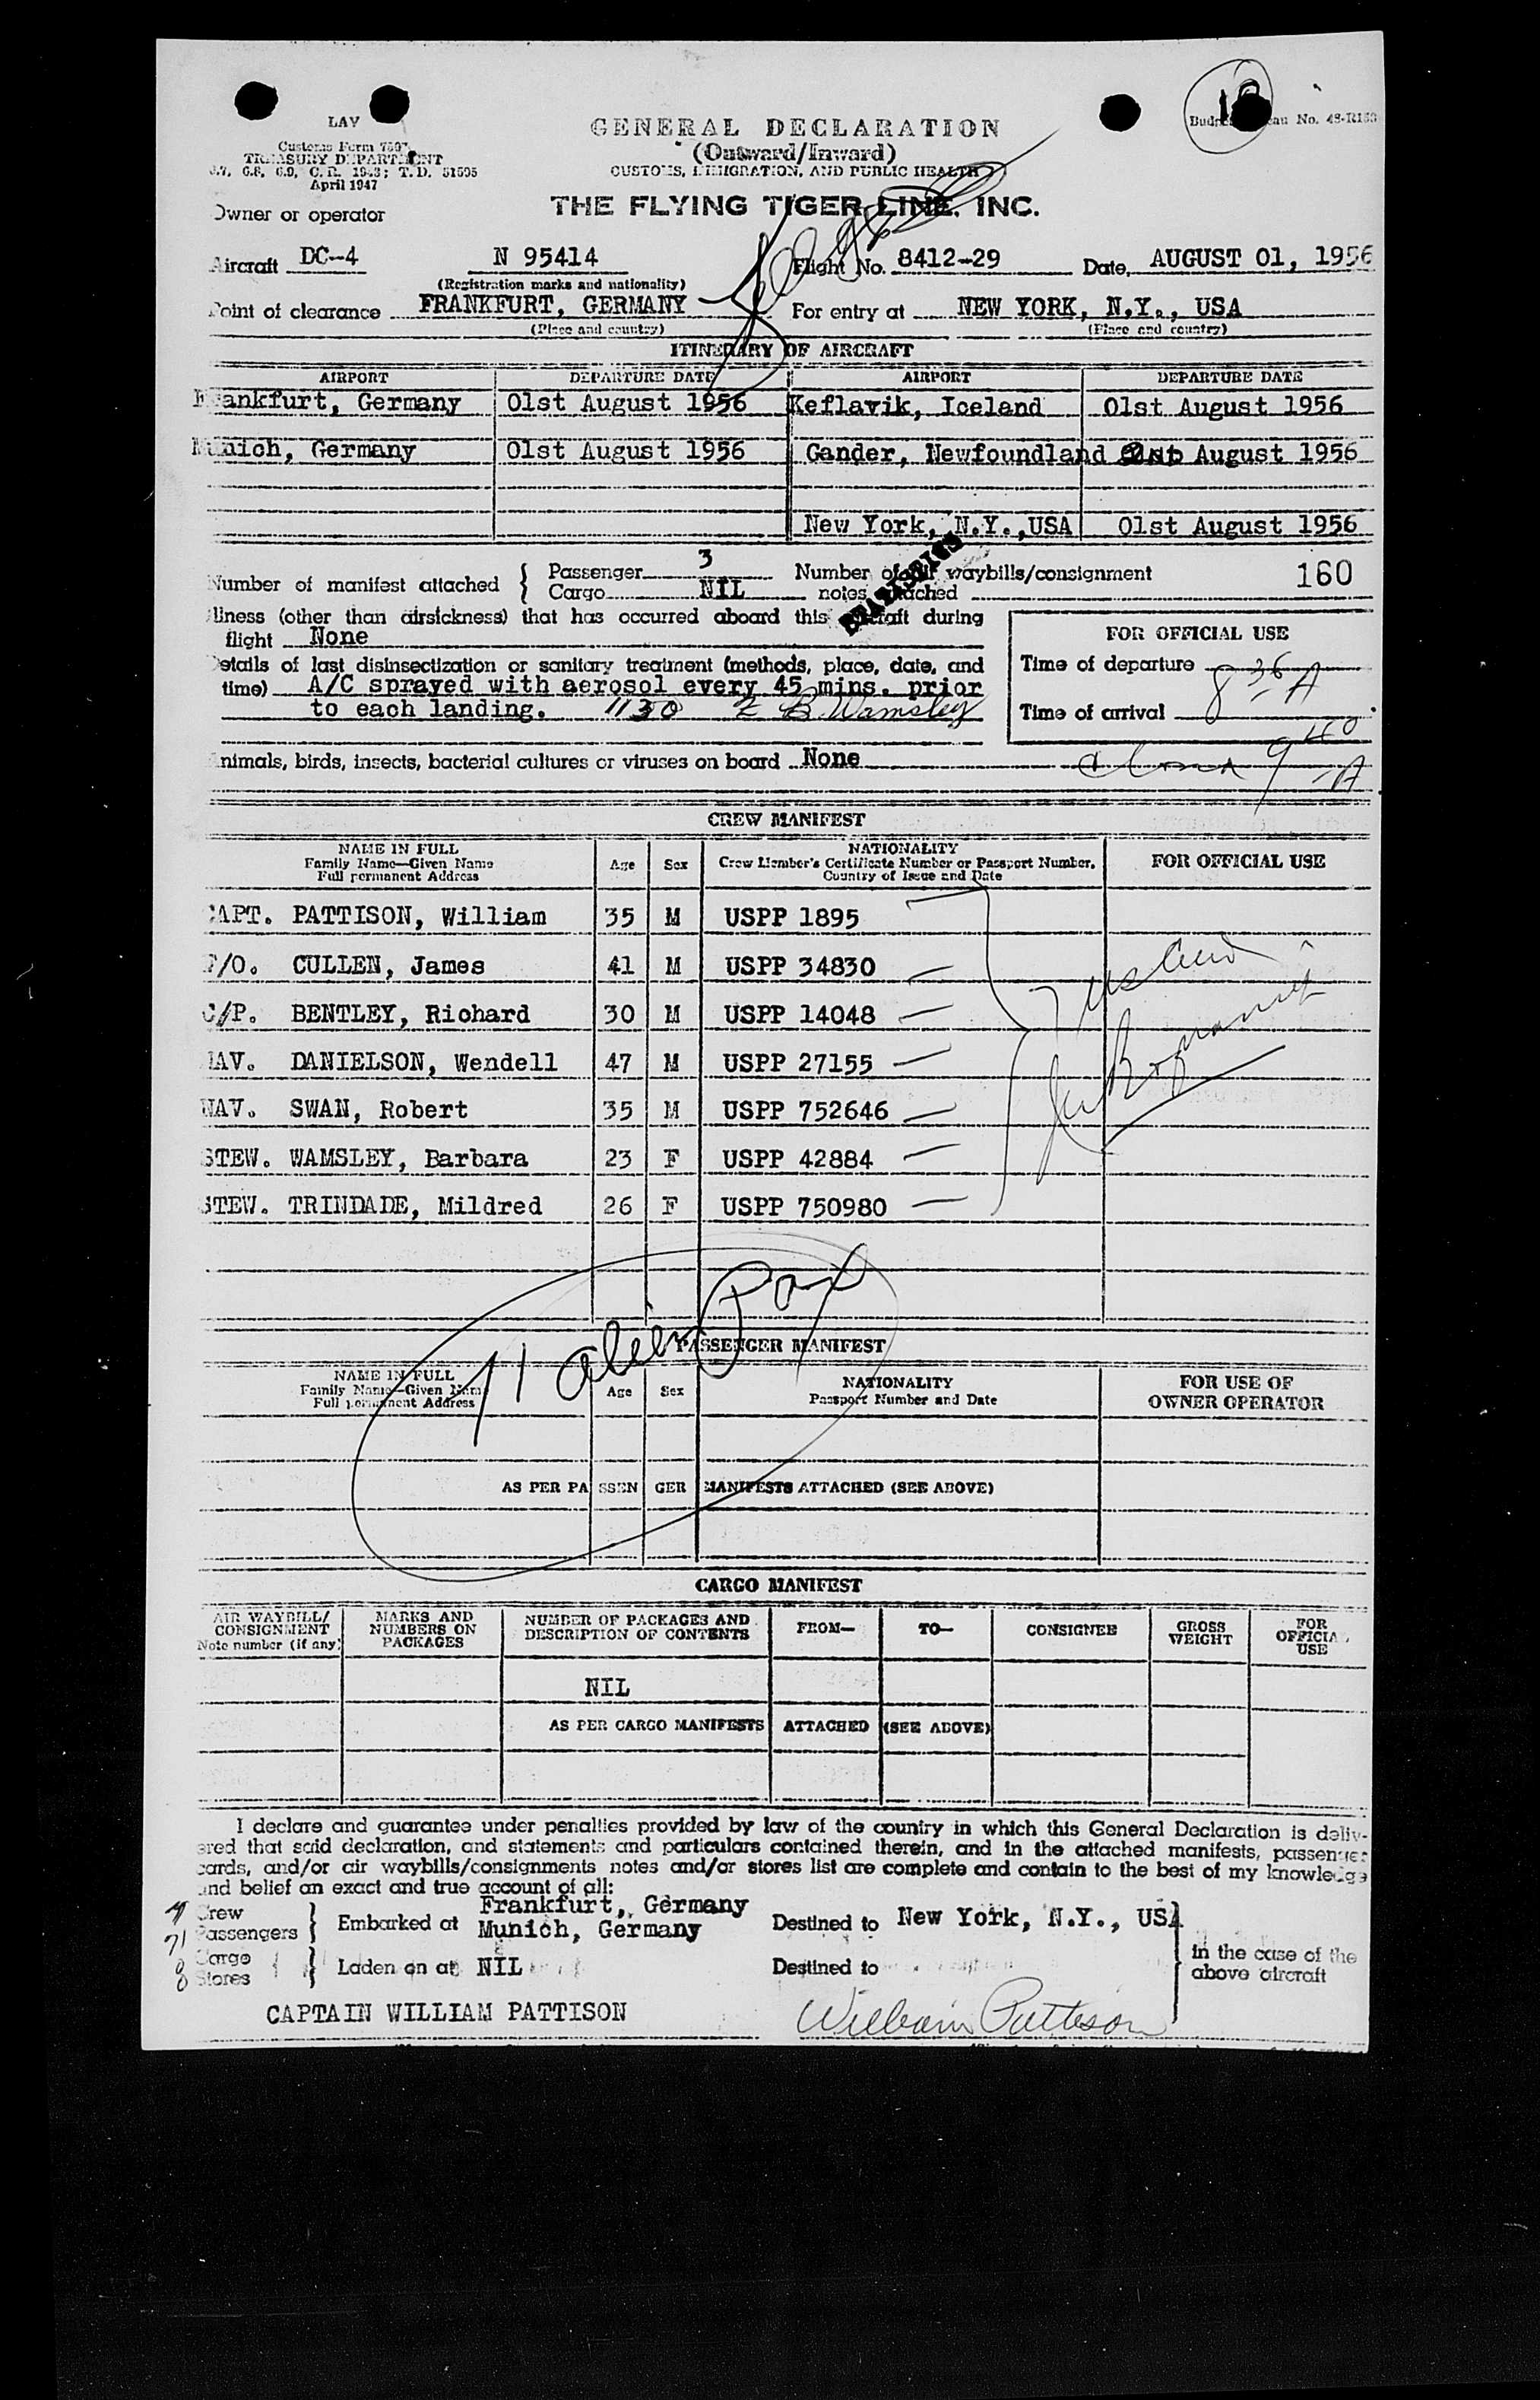 18
LAV
GENERAL DECLARATION
(Outward/Inward)
CUSTOMS, IMMIGRATION, AND PUBLIC HEALTH
Customs Form 7507
TREASURY DEPARTMENT
6.7, 6.8, 6.9, C. R. 1943; T. D. 51595
April 1947
Owner or operator
THE FLYING TIGER LINE, INC.
Aircraft DC-4 N 95414 Flight No. 8412-29 Date AUGUST 01, 1956
(Registration marks and nationality)
Point of clearance FRANKFURT, GERMANY For entry at NEW YORK, N.Y., USA
(Place and country) (Place and country)
ITINERARY OF AIRCRAFT
AIRPORT DEPARTURE DATE AIRPORT DEPARTURE DATE
Frankfurt, Germany 01st August 1956 Keflavik, Iceland 01st August 1956
Munich, Germany 01st August 1956 Gander, Newfoundland August 1956
New York, N.Y.,USA 01st August 1956
STATISTICS
Number of manifest attached { Passenger 3 Number of air waybills/consignment
Cargo NIL notes attached 160
Illness (other than airsickness) that has occurred aboard this aircraft during
flight None
Details of last disinsectization or sanitary treatment (methods, place, date, and
time) A/C sprayed with aerosol every 45 mins. prior
to each landing. 1130 B. Wamsley
FOR OFFICIAL USE
Time of departure
8 36 A
Time of arrival
9 40 A
Animals, birds, insects, bacterial cultures or viruses on board None
CREW MANIFEST
NAME IN FULL
Family Name—Given Name
Full permanent Address
Age Sex
NATIONALITY
Crew Member's Certificate Number or Passport Number,
Country of Issue and Date
FOR OFFICIAL USE
CAPT. PATTISON, William 35 M USPP 1895
F/O. CULLEN, James 41 M USPP 34830
C/P. BENTLEY, Richard 30 M USPP 14048
NAV. DANIELSON, Wendell 47 M USPP 27155
NAV. SWAN, Robert 35 M USPP 752646
STEW. WAMSLEY, Barbara 23 F USPP 42884
STEW. TRINDADE, Mildred 26 F USPP 750980
71 alien Pax
PASSENGER MANIFEST
NAME IN FULL
Family Name—Given Name
Full permanent Address
Age Sex
NATIONALITY
Passport Number and Date
FOR USE OF
OWNER OPERATOR
AS PER PASSENGER MANIFESTS ATTACHED (SEE ABOVE)
CARGO MANIFEST
AIR WAYBILL/
CONSIGNMENT
Note number (if any)
MARKS AND
NUMBERS ON
PACKAGES
NUMBER OF PACKAGES AND
DESCRIPTION OF CONTENTS
FROM— TO— CONSIGNEE
GROSS
WEIGHT
FOR
OFFICIAL
USE
NIL
AS PER CARGO MANIFESTS ATTACHED (SEE ABOVE)
I declare and guarantee under penalties provided by law of the country in which this General Declaration is deliv-
ered that said declaration, and statements and particulars contained therein, and in the attached manifests, passenger
cards, and/or air waybills/consignments notes and/or stores list are complete and contain to the best of my knowledge
and belief an exact and true account of all:
7 Crew
71 Passengers } Embarked at Frankfurt, Germany
Munich, Germany Destined to New York, N.Y., USA
0 Cargo
0 Stores } Laden on at NIL Destined to
in the case of the
above aircraft
CAPTAIN WILLIAM PATTISON William Pattison